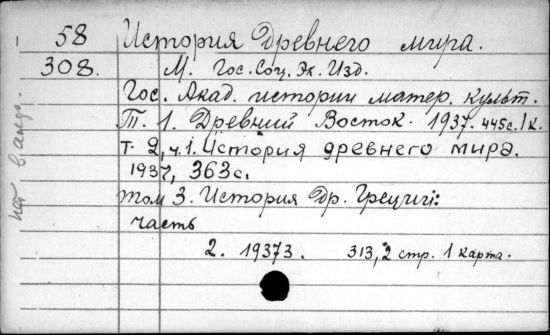 58 История Древнего мира.
308. М. Гос. Соц. Эк. Изд.
Гос. Акад. истории матер. культ.
Т. 1. Древний Восток. 1937. 445с. 1 к.
т. 2, ч. 1. История древнего мира.
1937, 363 с.
том 3. История Др. Греции:
часть
2. 1937 г. 313, 2 стр. 1 карта.